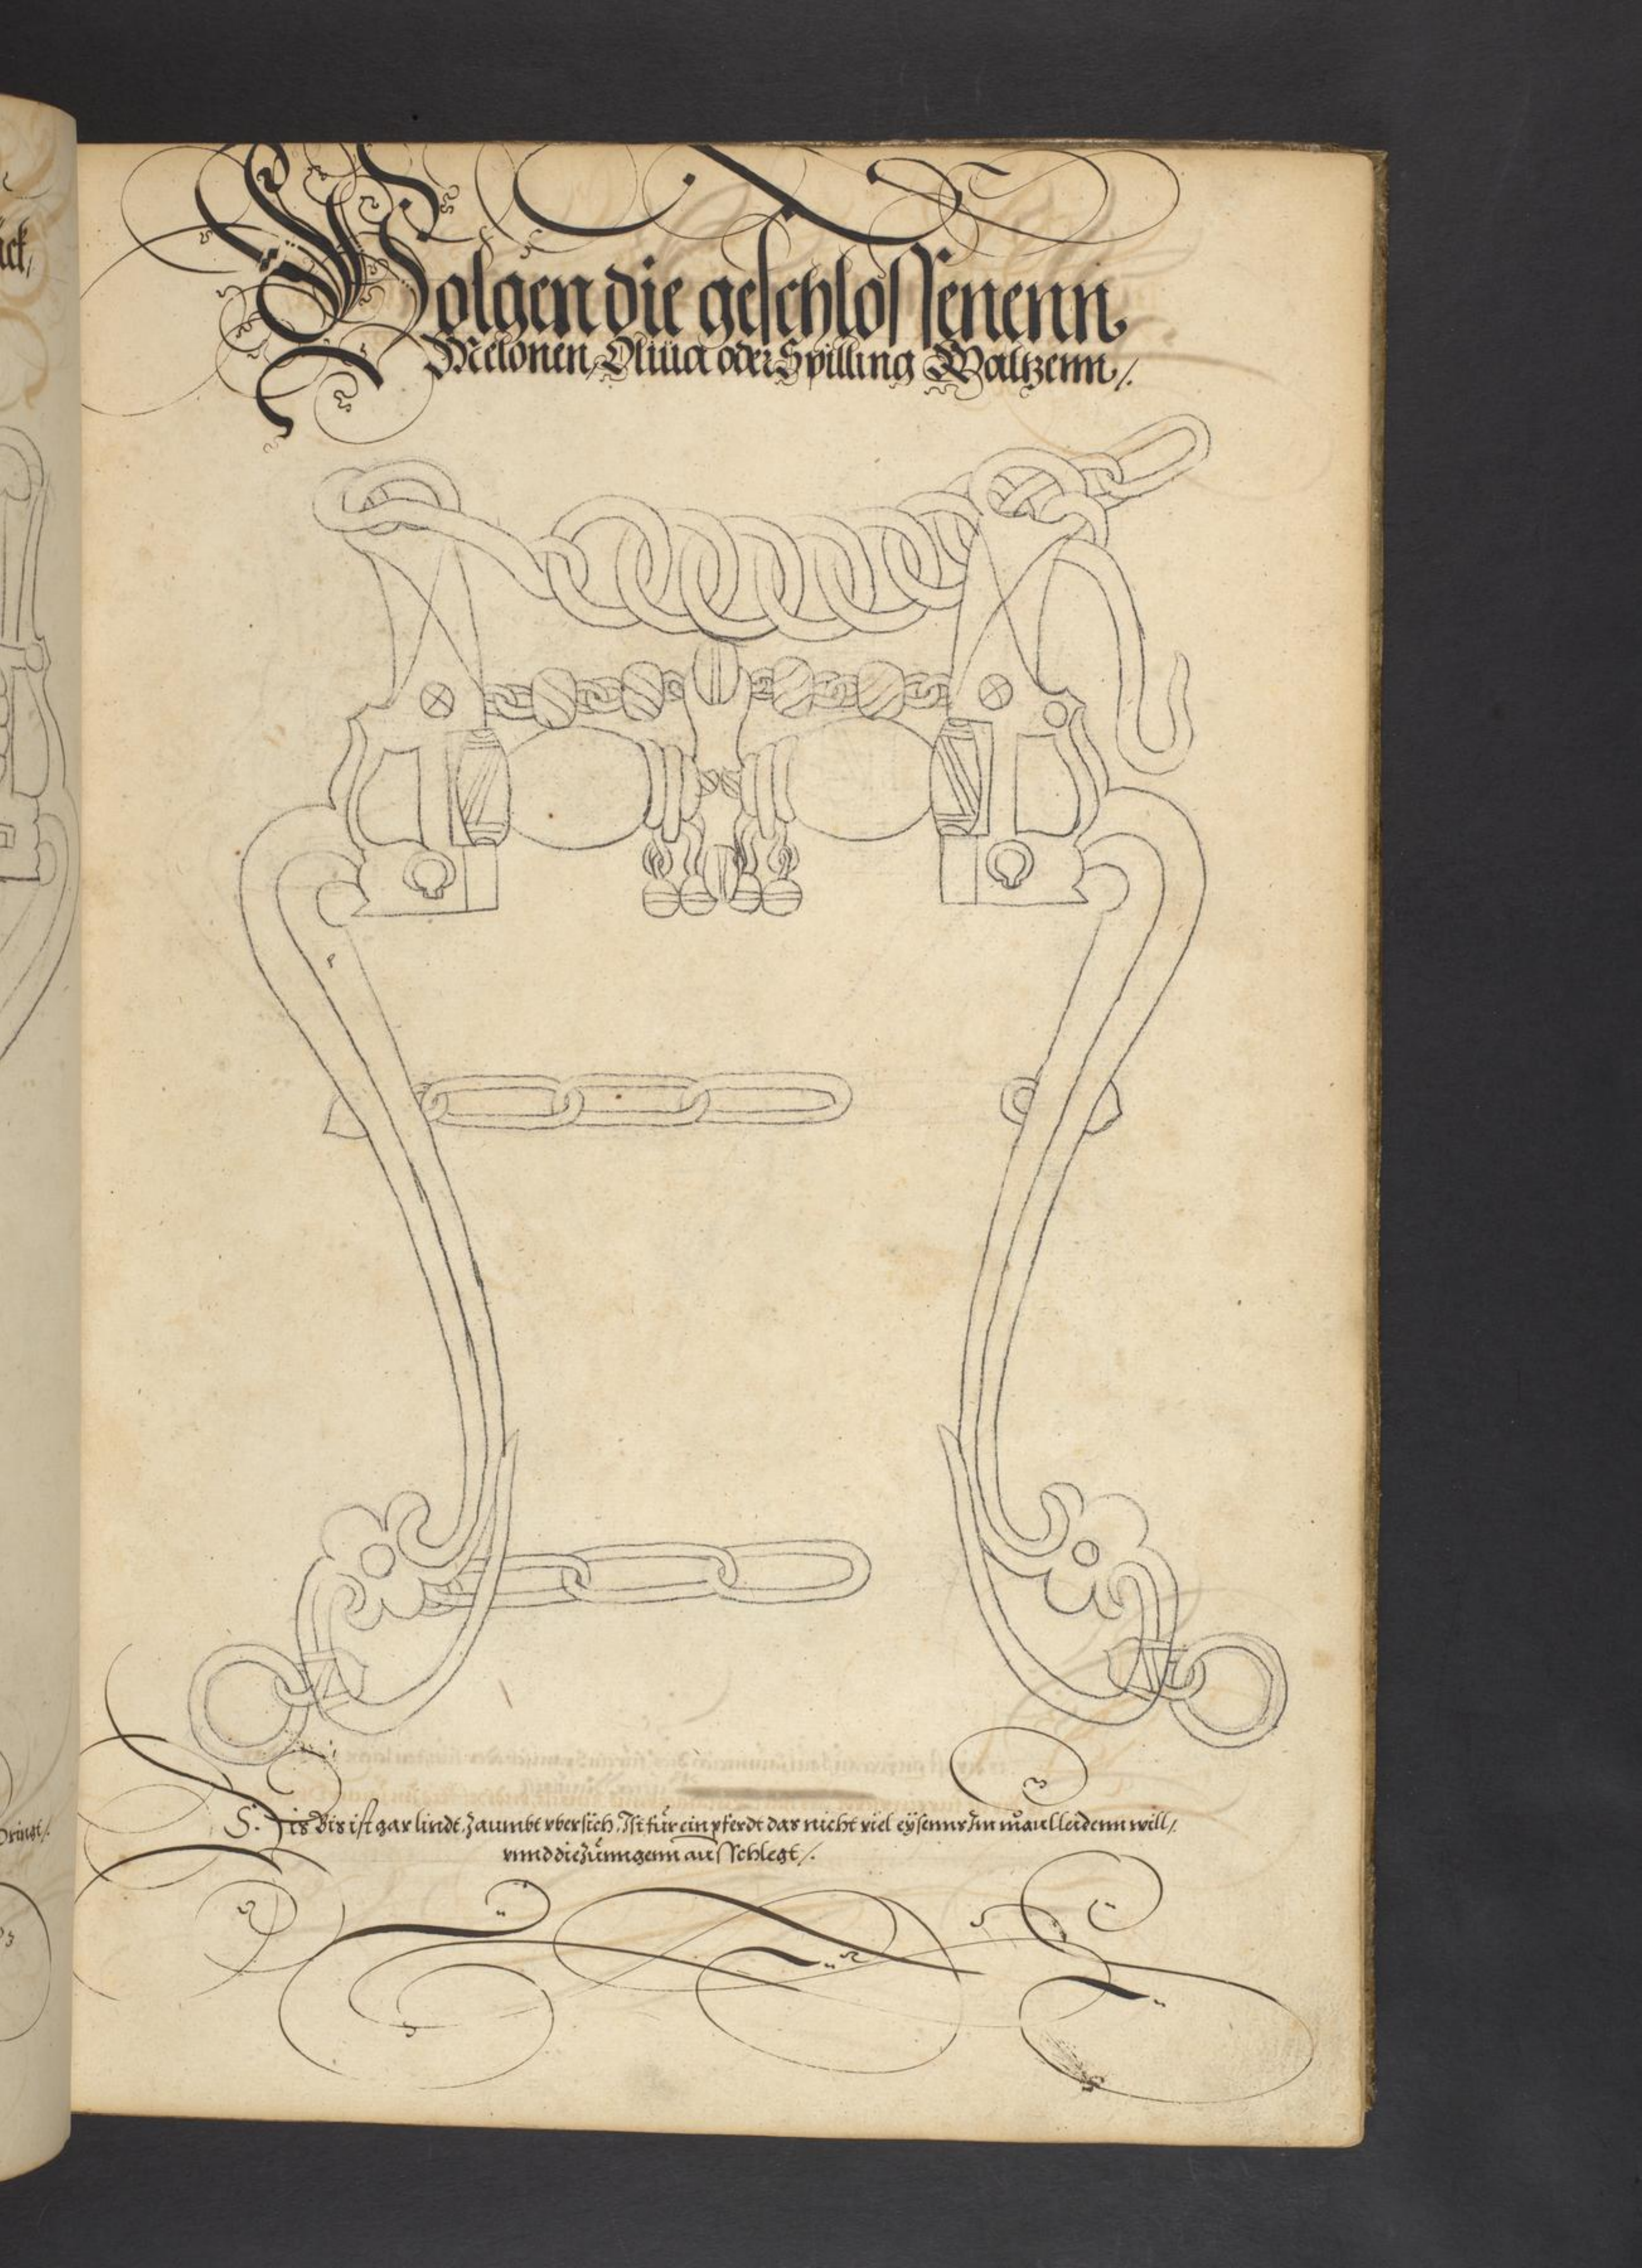 Volgen die geschlossenenn
Melonen, Oliua oder Spilling Waltzenn /.
Dis Bis ist gar lindt, Zaumbt vbersich. Ist für ein pferdt das nicht viel eÿsenns Im maul leidenn will /
vnnd die Zünngenn ausschlegt /.